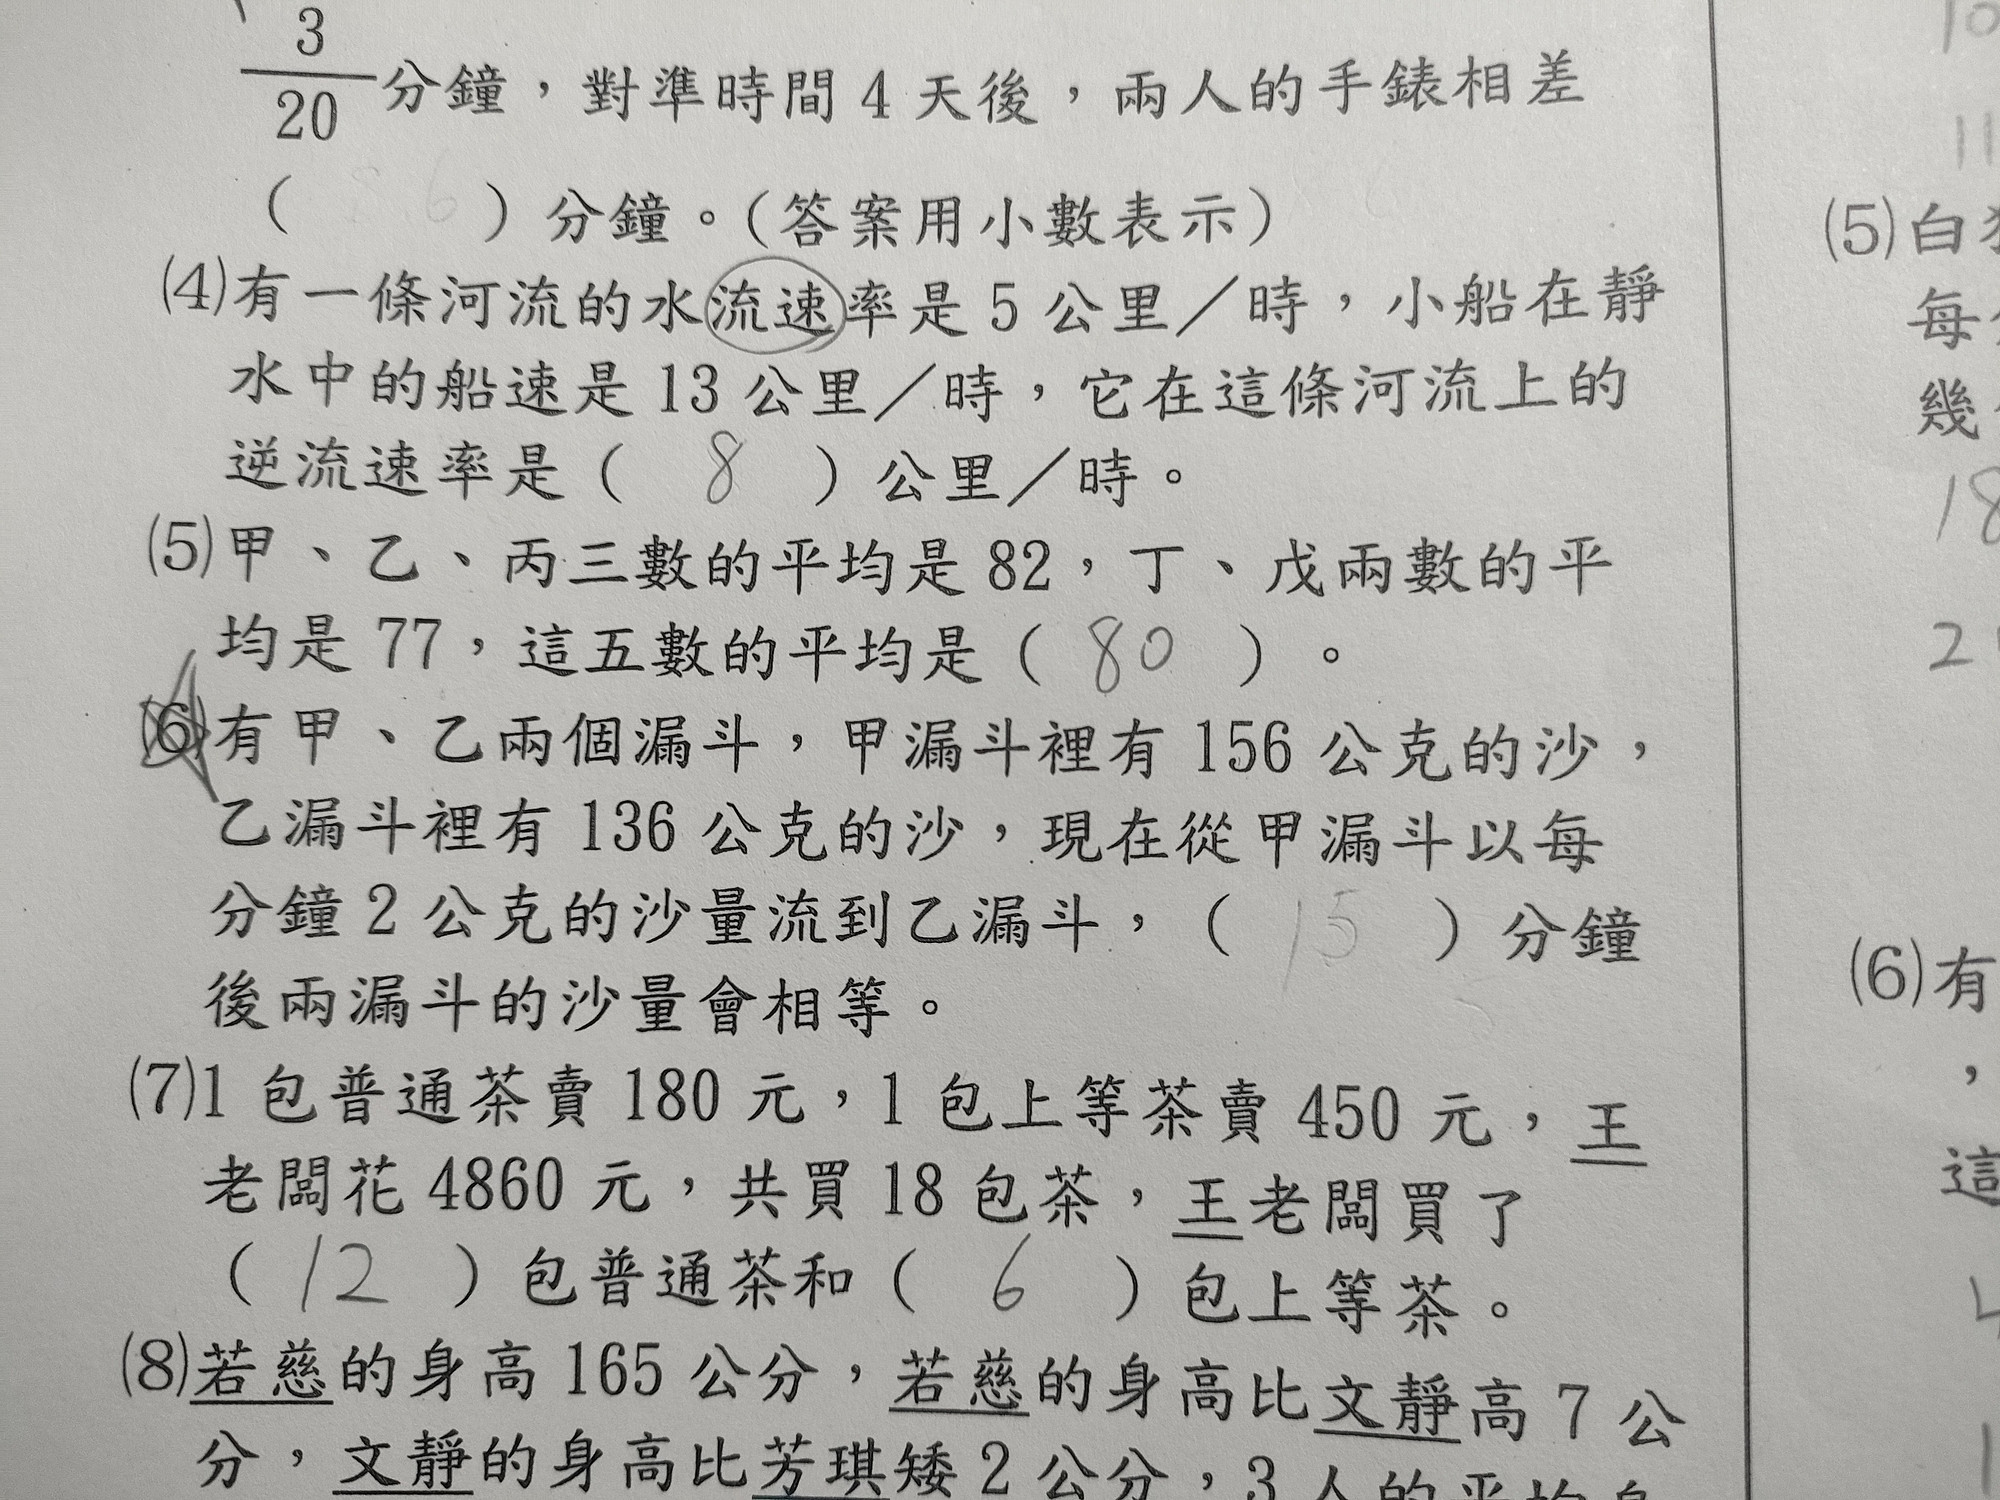 3
20
分鐘，對準時間4天後，兩人的手錶相差
（ ）分鐘。（答案用小數表示）
⑷有一條河流的水流速率是5公里／時，小船在靜
水中的船速是13公里／時，它在這條河流上的
逆流速率是（ 8 ）公里／時。
⑸甲、乙、丙三數的平均是82，丁、戊兩數的平
均是77，這五數的平均是（ 80 ）。
⑹有甲、乙兩個漏斗，甲漏斗裡有156公克的沙，
乙漏斗裡有136公克的沙，現在從甲漏斗以每
分鐘2公克的沙量流到乙漏斗，（ 15 ）分鐘
後兩漏斗的沙量會相等。
⑺1包普通茶賣180元，1包上等茶賣450元，王
老闆花4860元，共買18包茶，王老闆買了
（ 12 ）包普通茶和（ 6 ）包上等茶。
⑻若慈的身高165公分，若慈的身高比文靜高7公
分，文靜的身高比芳琪矮2公分，3人的平均身
10
11
⑸白
每
幾
18
2
⑹有
，
這